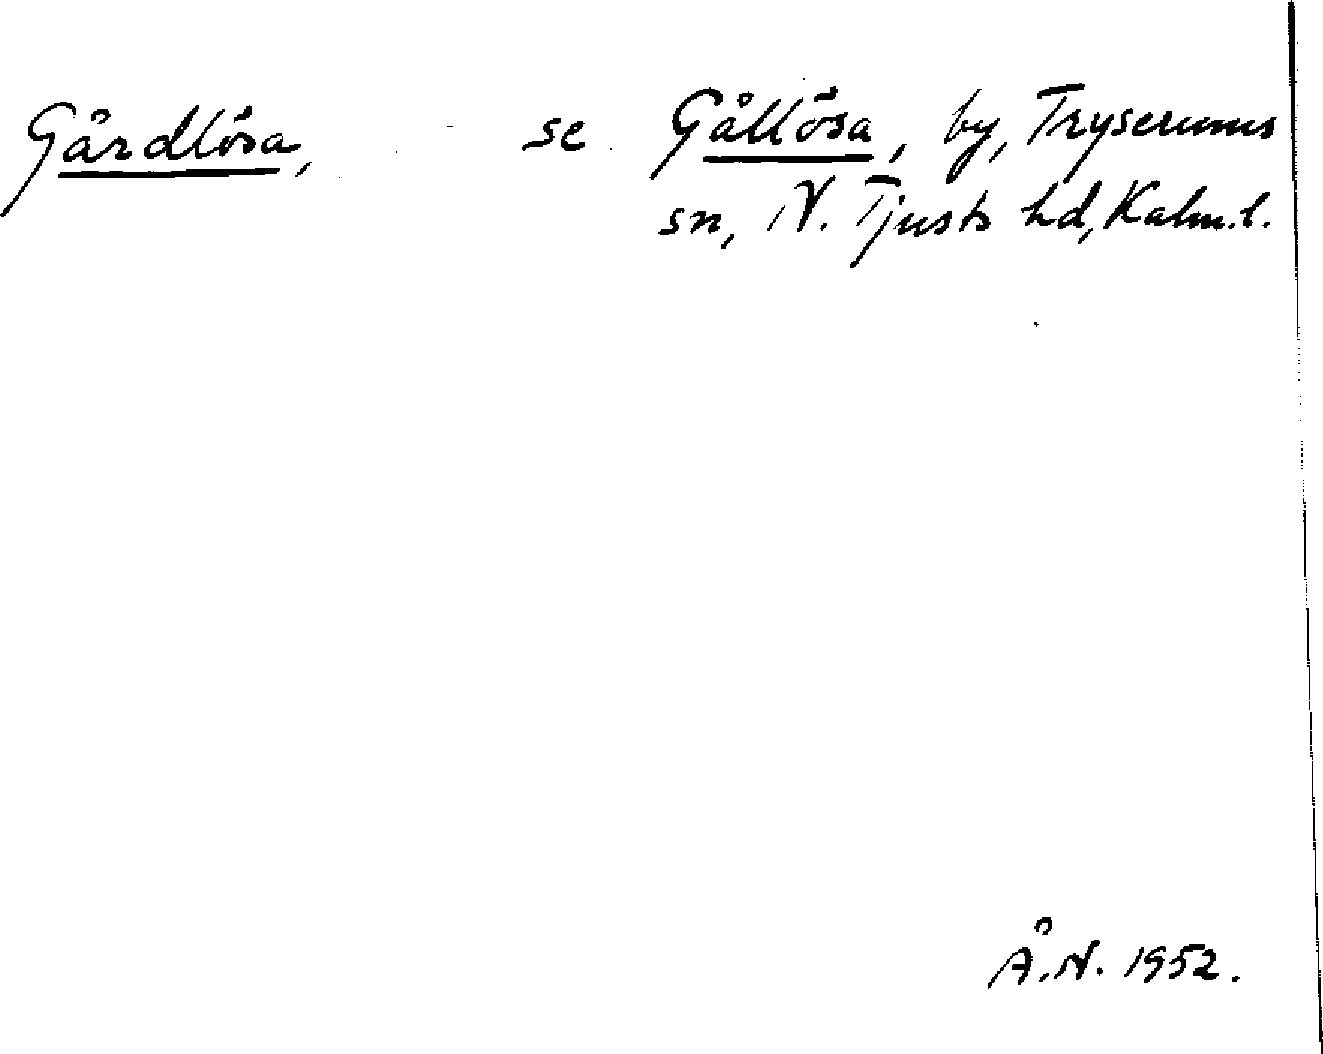 Gårdlösa, se Gållösa, by, Tryserums
sn, N. Tjusts hd, Kalm. l.
Å.N. 1952.